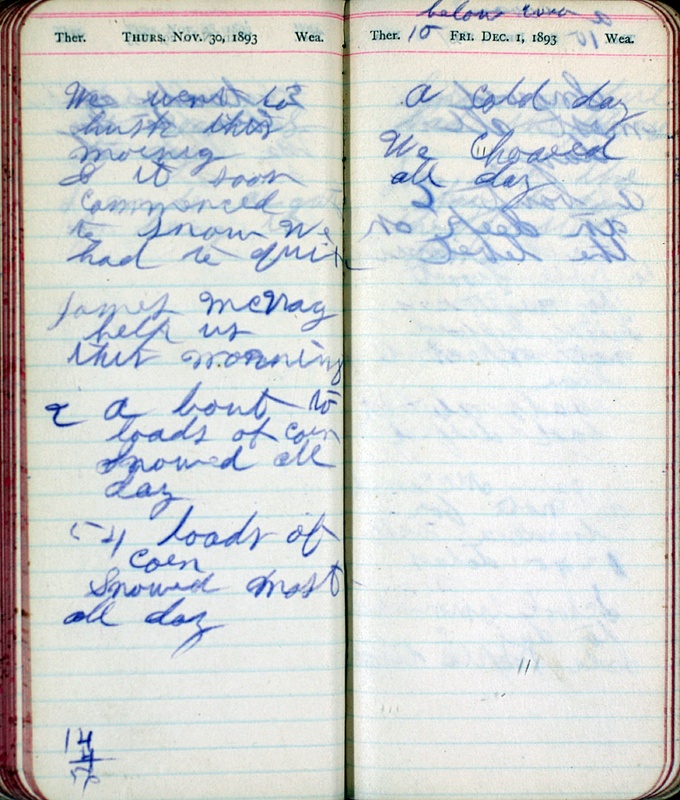 Ther. THURS. NOV. 30, 1893 Wea.
We went to
husk this
moring
& it soon
commenced
to snow We
had to quit
James McVay
help us
this morning
& a bout to
loads of corn
snowed all
day
54 loads of
corn
Snowed most
all day
14
4
56
below zero
Ther. 10 FRI. DEC. 1, 1893 Wea.
a cold day
We Choared
all day